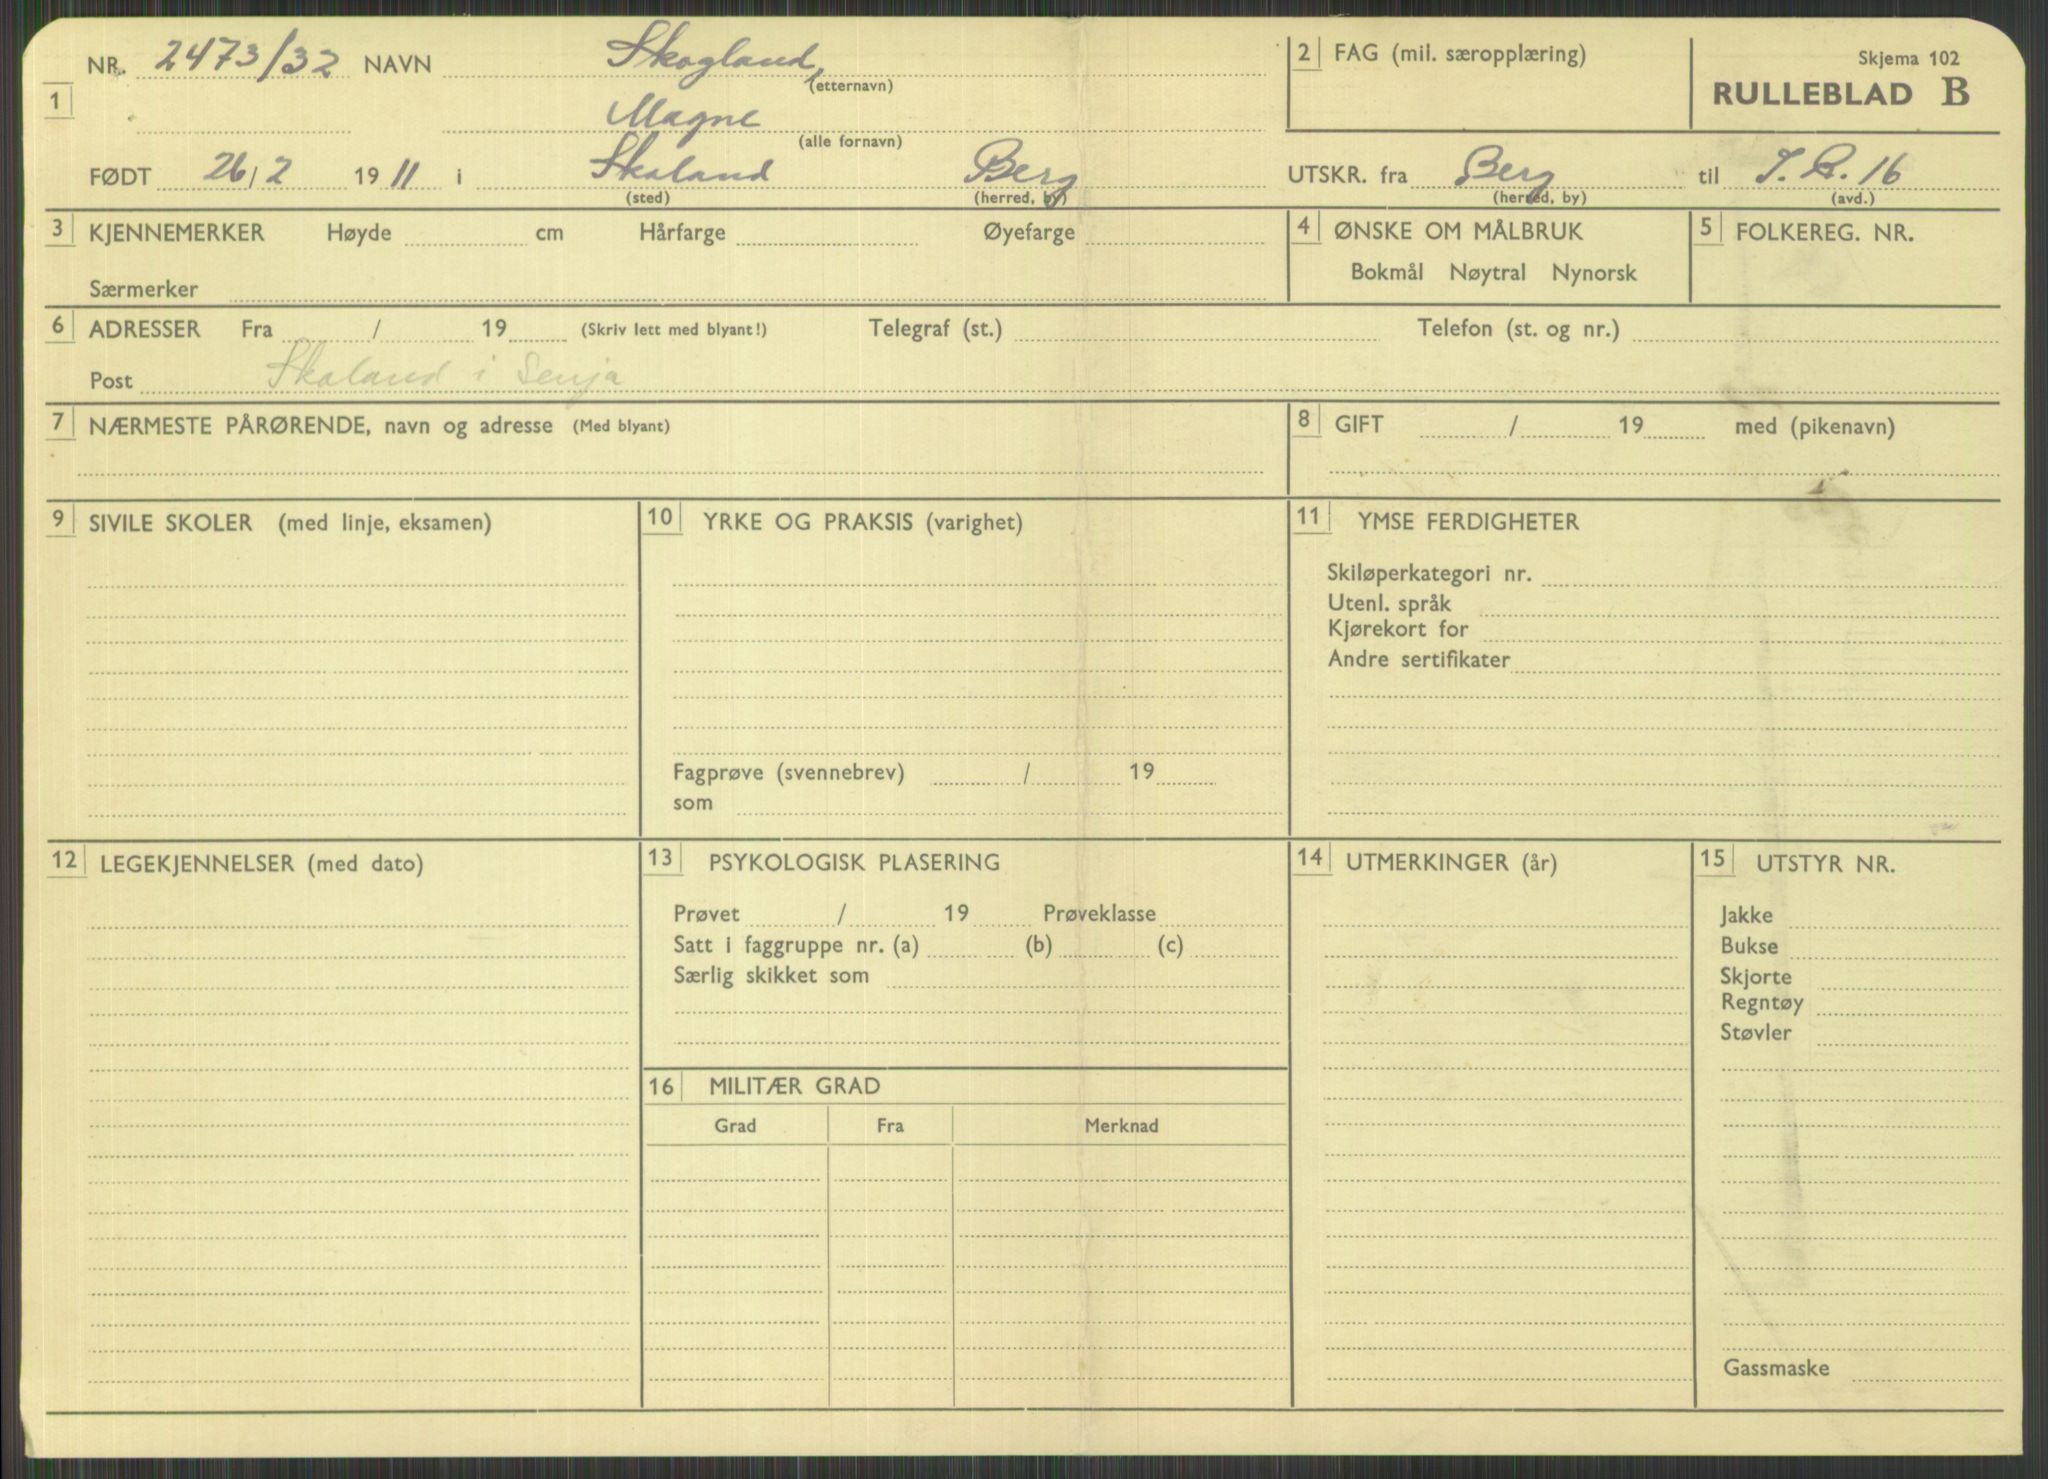 NR. 2473/32 NAVN Skogland, (etternavn)
2 FAG (mil. særopplæring)
Skjema 102
RULLEBLAD B
1
Magne (alle fornavn)
FØDT 26/2 1911 i Skaland (sted) Berg (herred, by)
UTSKR. fra Berg (herred, by) til I.R. 16 (avd.)
3 KJENNEMERKER Høyde cm Hårfarge Øyefarge
Særmerker
4 ØNSKE OM MÅLBRUK
Bokmål Nøytral Nynorsk
5 FOLKEREG. NR.
6 ADRESSER Fra / 19 (Skriv lett med blyant!) Telegraf (st.) Telefon (st. og nr.)
Post Skaland i Senja
7 NÆRMESTE PÅRØRENDE, navn og adresse (Med blyant)
8 GIFT / 19 med (pikenavn)
9 SIVILE SKOLER (med linje, eksamen)
10 YRKE OG PRAKSIS (varighet)
Fagprøve (svennebrev) / 19
som
11 YMSE FERDIGHETER
Skiløperkategori nr.
Utenl. språk
Kjørekort for
Andre sertifikater
12 LEGEKJENNELSER (med dato)
13 PSYKOLOGISK PLASERING
Prøvet / 19 Prøveklasse
Satt i faggruppe nr. (a) (b) (c)
Særlig skikket som
14 UTMERKINGER (år)
15 UTSTYR NR.
Jakke
Bukse
Skjorte
Regntøy
Støvler
Gassmaske
16 MILITÆR GRAD
Grad Fra Merknad